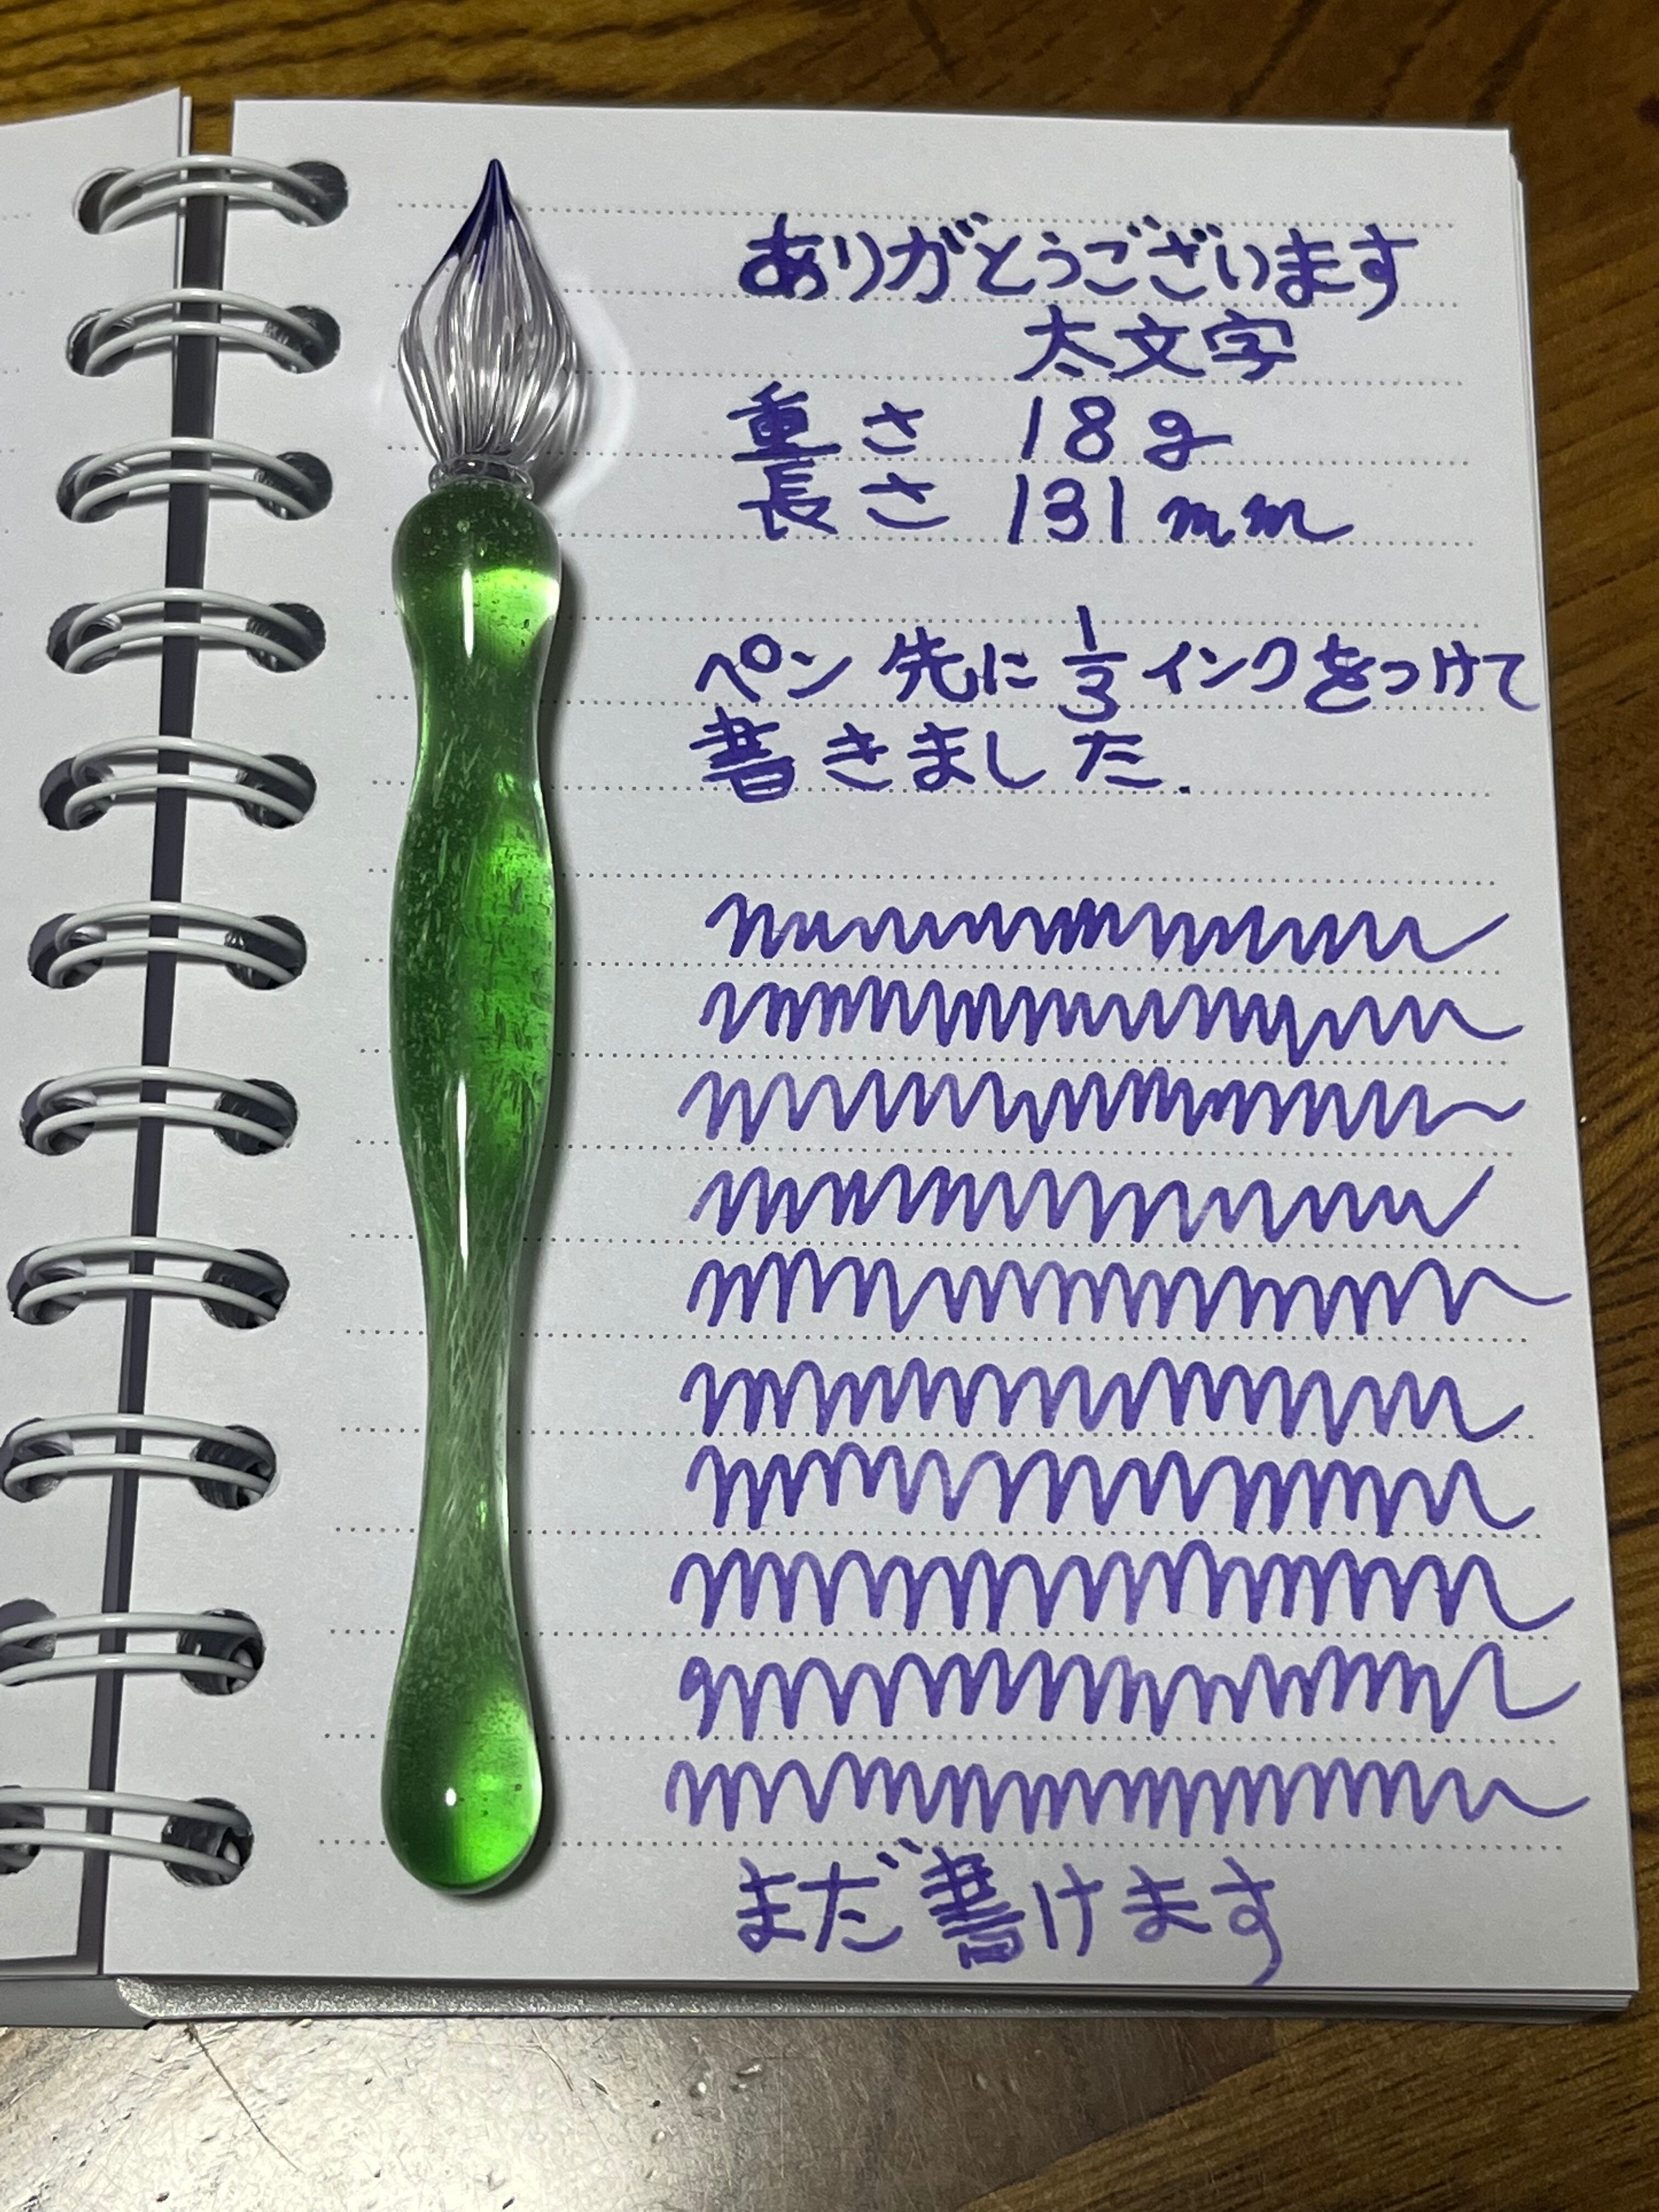 ありがとうございます
太文字
重さ 18g
長さ 131mm
ペン先に 1/3 インクをつけて
書きました.
まだ書けます